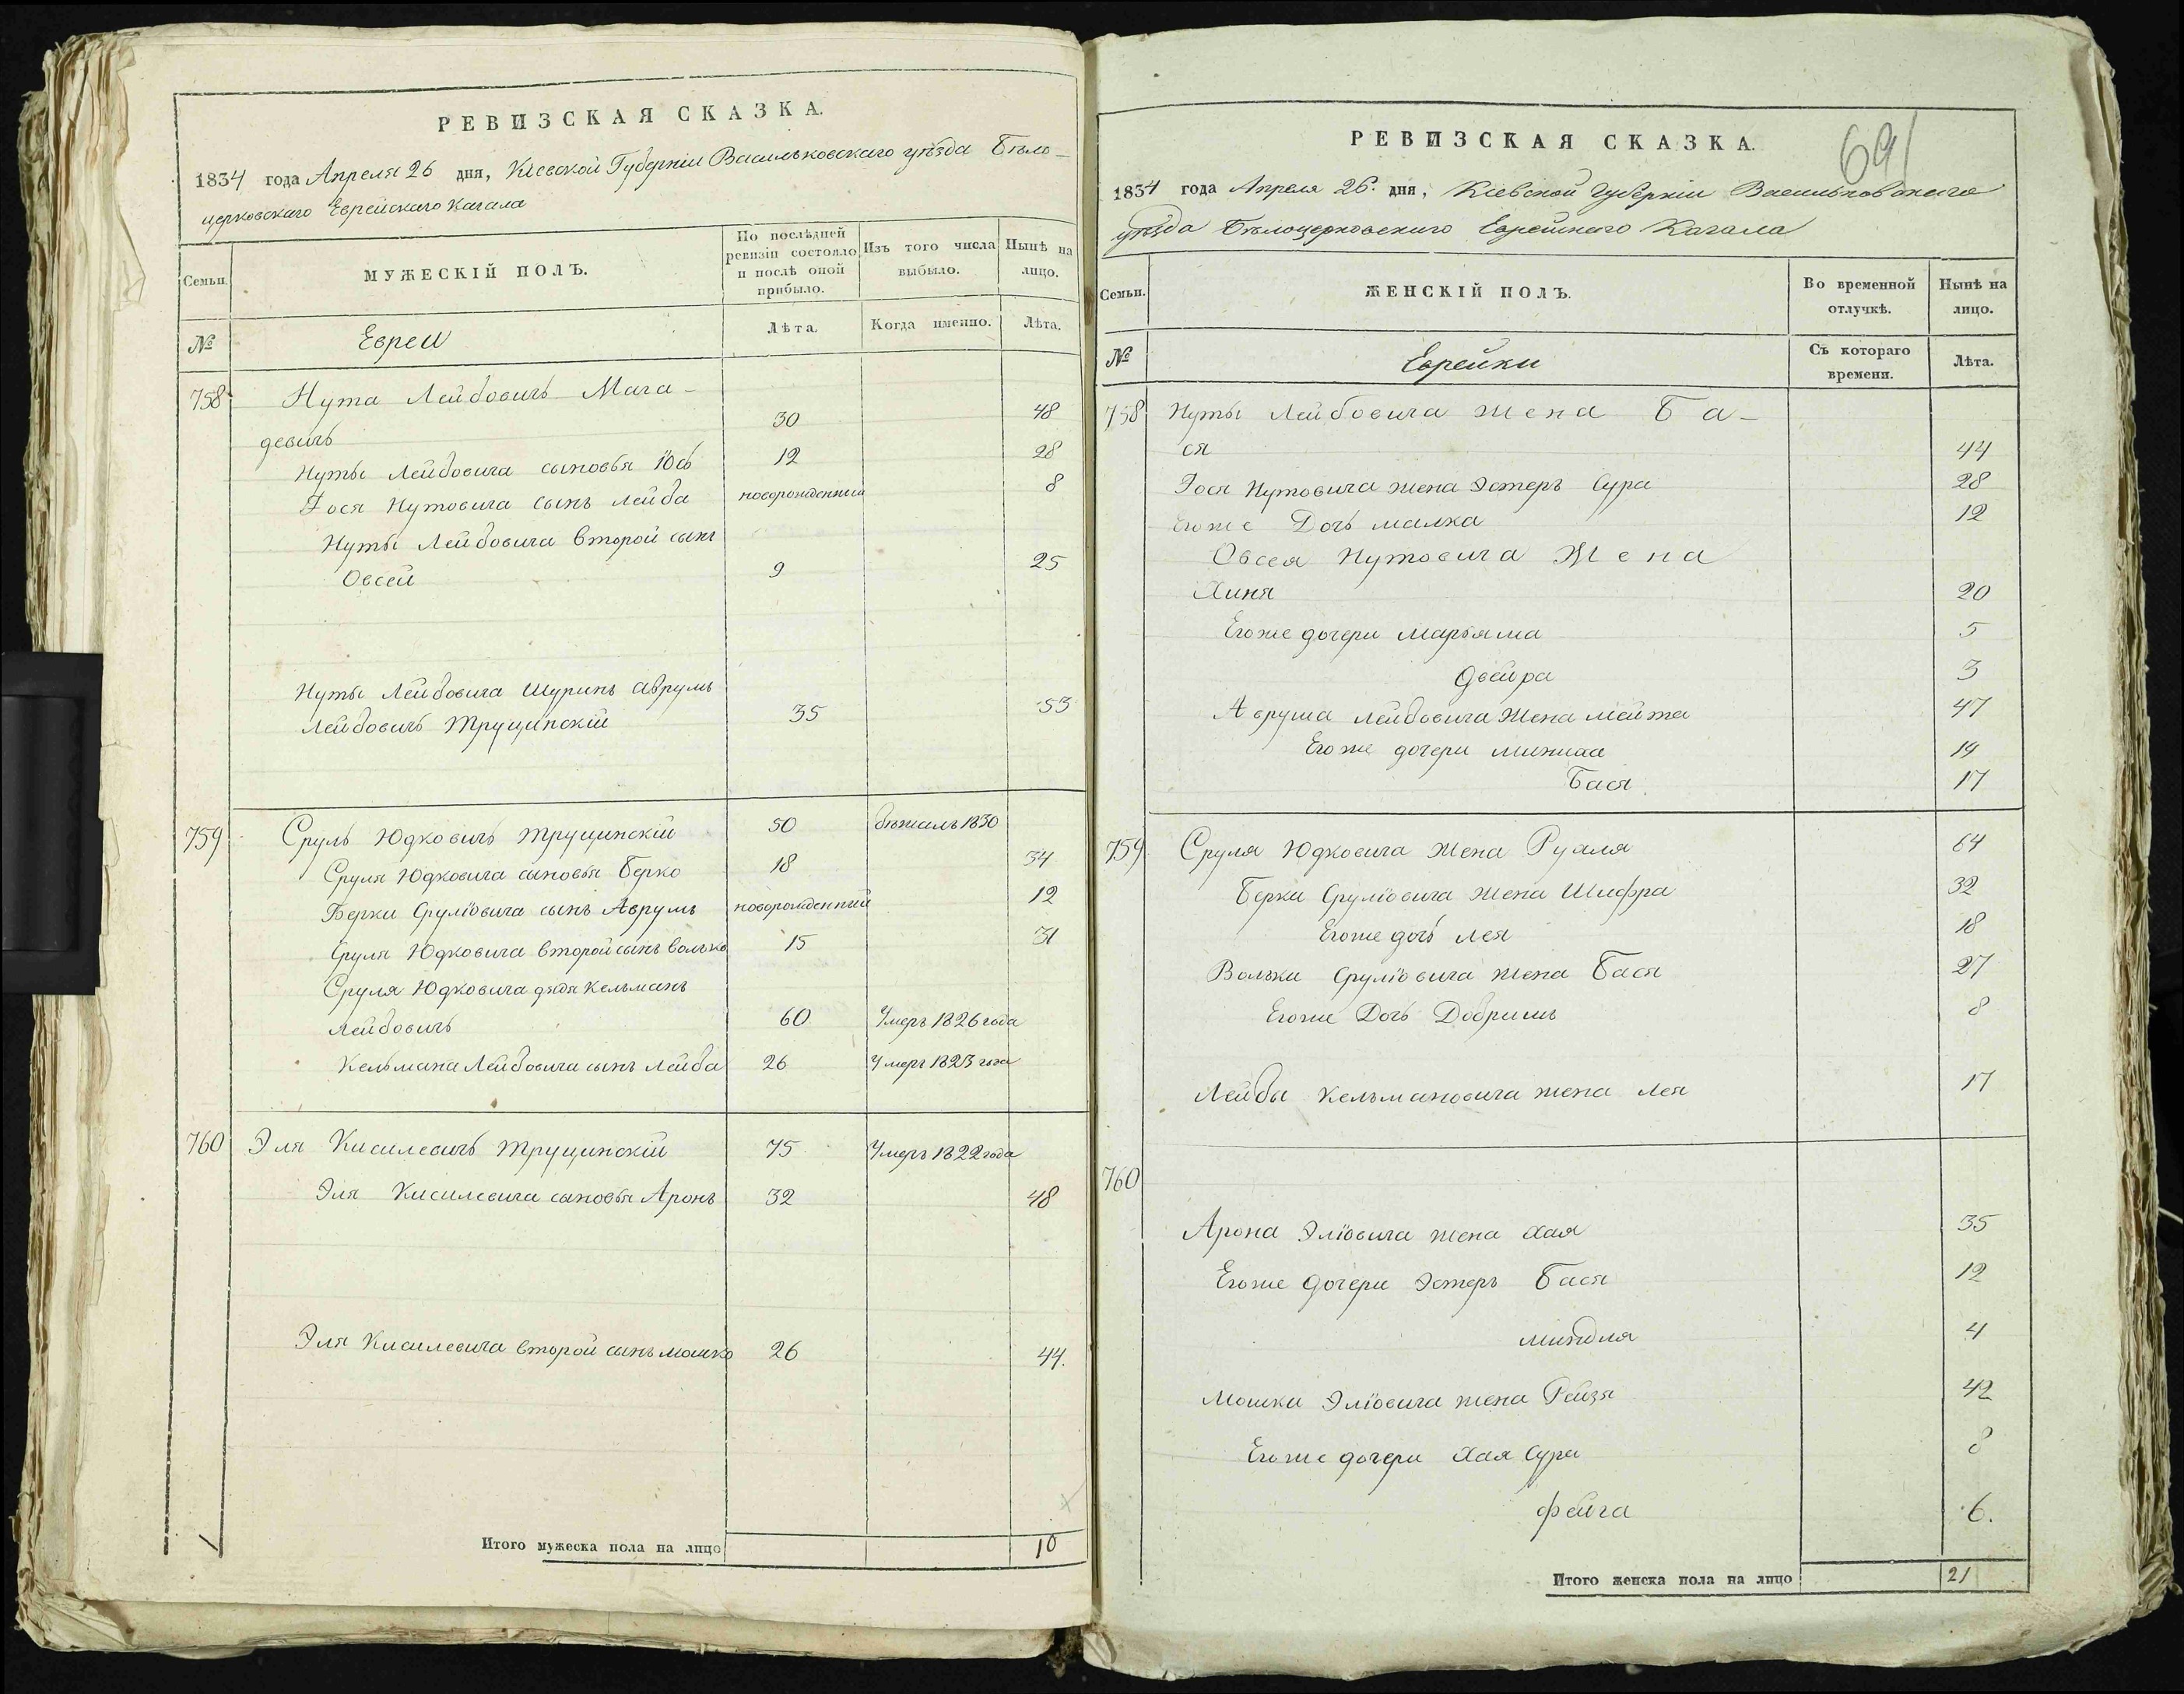 РЕВИЗСКАЯ СКАЗКА.
1834 года Апреля 26 дня, Кіевской Губерніи Васильковскаго уѣзда Бѣло-
церковскаго Еврейскаго Кагала
Семьи.
МУЖЕСКІЙ ПОЛЪ.
По послѣдней ревизіи состояло и послѣ оной прибыло.
Изъ того числа выбыло.
Нынѣ на лицо.
№
Евреи
Лѣта.
Когда именно.
Лѣта.
758 Нута Лейбовичъ Мага-
девичъ 30 48
Нуты Лейбовича сыновья Іось 12 28
Іося Нутовича сынъ Лейба новорожденный 8
Нуты Лейбовича второй сынъ
Овсей 9 25
Нуты Лейбовича Шуринъ Аврумъ
Лейбовичъ Трущинскій 35 53
759 Сруль Юдковичъ Трущинскій 50 бѣжалъ 1830
Сруля Юдковича сыновья Берко 18 34
Берки Сруліовича сынъ Аврумъ новорожденный 12
Сруля Юдковича второй сынъ Волько 15 31
Сруля Юдковича дядя Кельманъ
Лейбовичъ 60 Умеръ 1826 года
Кельмана Лейбовича сынъ Лейба 26 Умеръ 1823 года
760 Эля Кисилевичъ Трущинскій 75 Умеръ 1822 года
Эля Кисилевича сыновья Аронъ 32 48
Эля Кисилевича второй сынъ Мошко 26 44.
Итого мужеска пола на лицо 10
691
РЕВИЗСКАЯ СКАЗКА.
1834 года Апреля 26. дня, Кіевской Губерніи Васильковскаго
уѣзда Бѣлоцерковскаго Еврейскаго Кагала
Семьи.
ЖЕНСКІЙ ПОЛЪ.
Во временной отлучкѣ.
Нынѣ на лицо.
№
Еврейки
Съ котораго времени.
Лѣта.
758 Нуты Лейбовича жена Ба-
ся 44
Іося Нутовича жена Эстеръ Сура 28
Егоже Дочь малка 12
Овсея Нутовича Жена
Хиня 20
Егоже дочери Марьяма 5
Двейра 3
Аврума Лейбовича Жена Мейта 47
Егоже дочери 19
Бася 17
759 Сруля Юдковича Жена Рухля 64
Берки Сруліовича Жена Шифра 32
Егоже дочь Лея 18
Вольки Сруліовича жена Бася 27
Егоже Дочь Добришъ 8
Лейбы Кельмановича жена Лея 17
760
Арона Эліовича жена Хая 35
Егоже дочери Эстеръ Бася 12
миндля 4
Мошки Эліовича жена Рейзя 42
Егоже дочери Хая Сура 8
фейга 6.
Итого женска пола на лицо 21